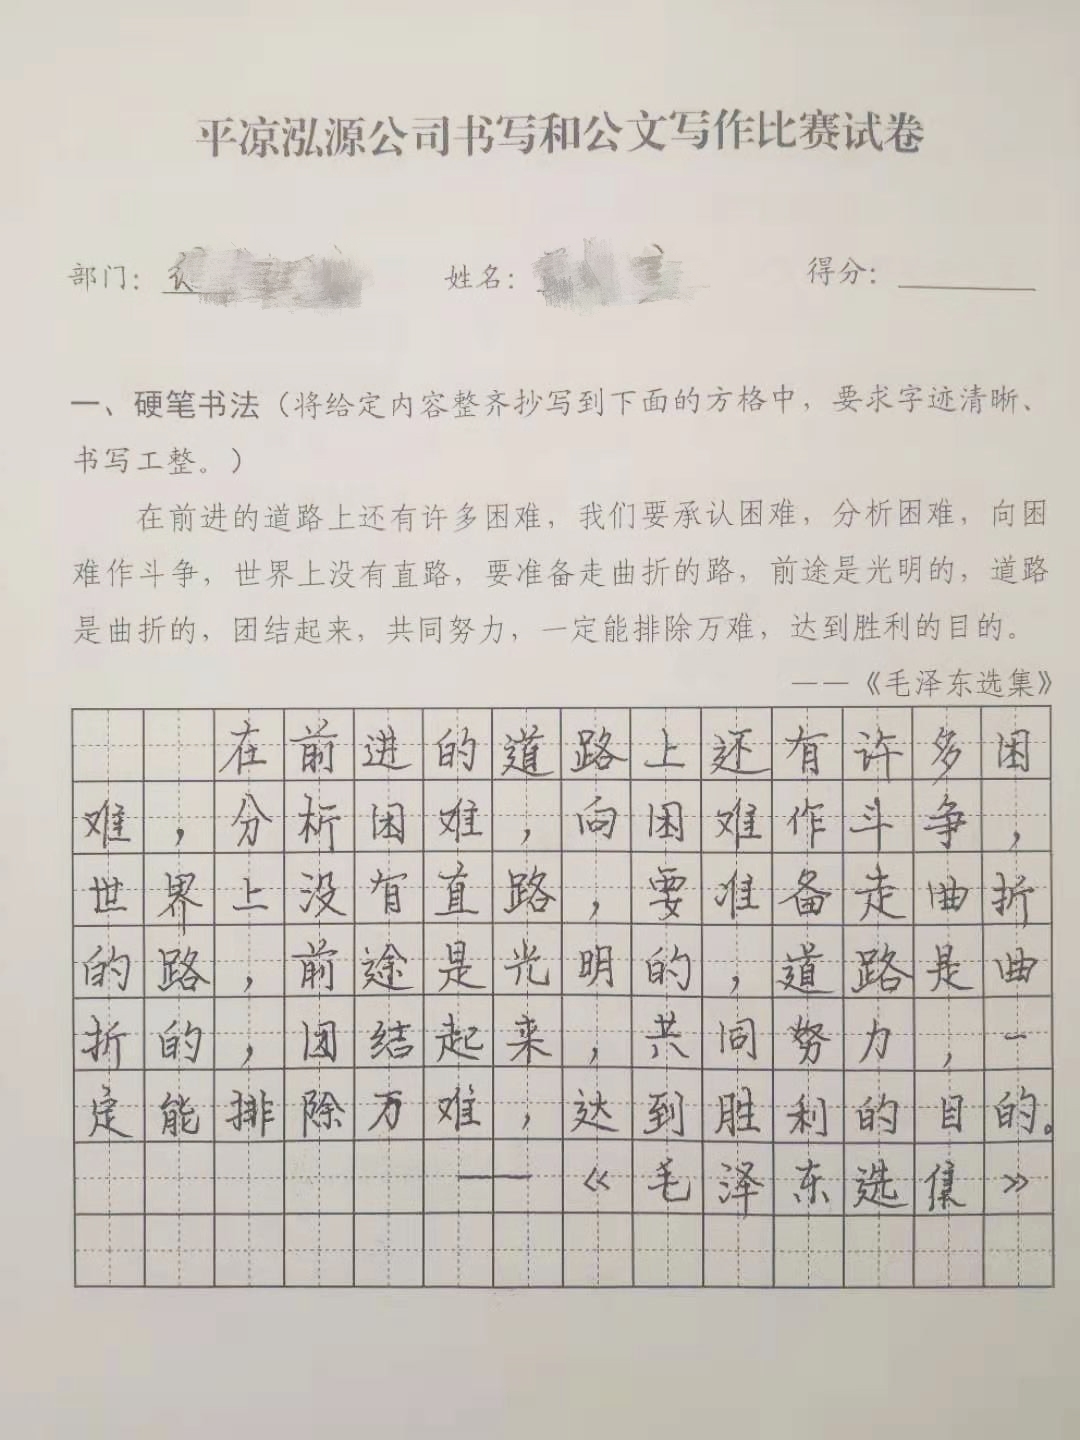 平凉泓源公司书写和公文写作比赛试卷
部门： 姓名： 得分：
一、硬笔书法（将给定内容整齐抄写到下面的方格中，要求字迹清晰、
书写工整。）
在前进的道路上还有许多困难，我们要承认困难，分析困难，向困
难作斗争，世界上没有直路，要准备走曲折的路，前途是光明的，道路
是曲折的，团结起来，共同努力，一定能排除万难，达到胜利的目的。
——《毛泽东选集》
在前进的道路上还有许多困
难，分析困难，向困难作斗争，
世界上没有直路，要准备走曲折
的路，前途是光明的，道路是曲
折的，团结起来，共同努力，一
定能排除万难，达到胜利的目的。
——《毛泽东选集》